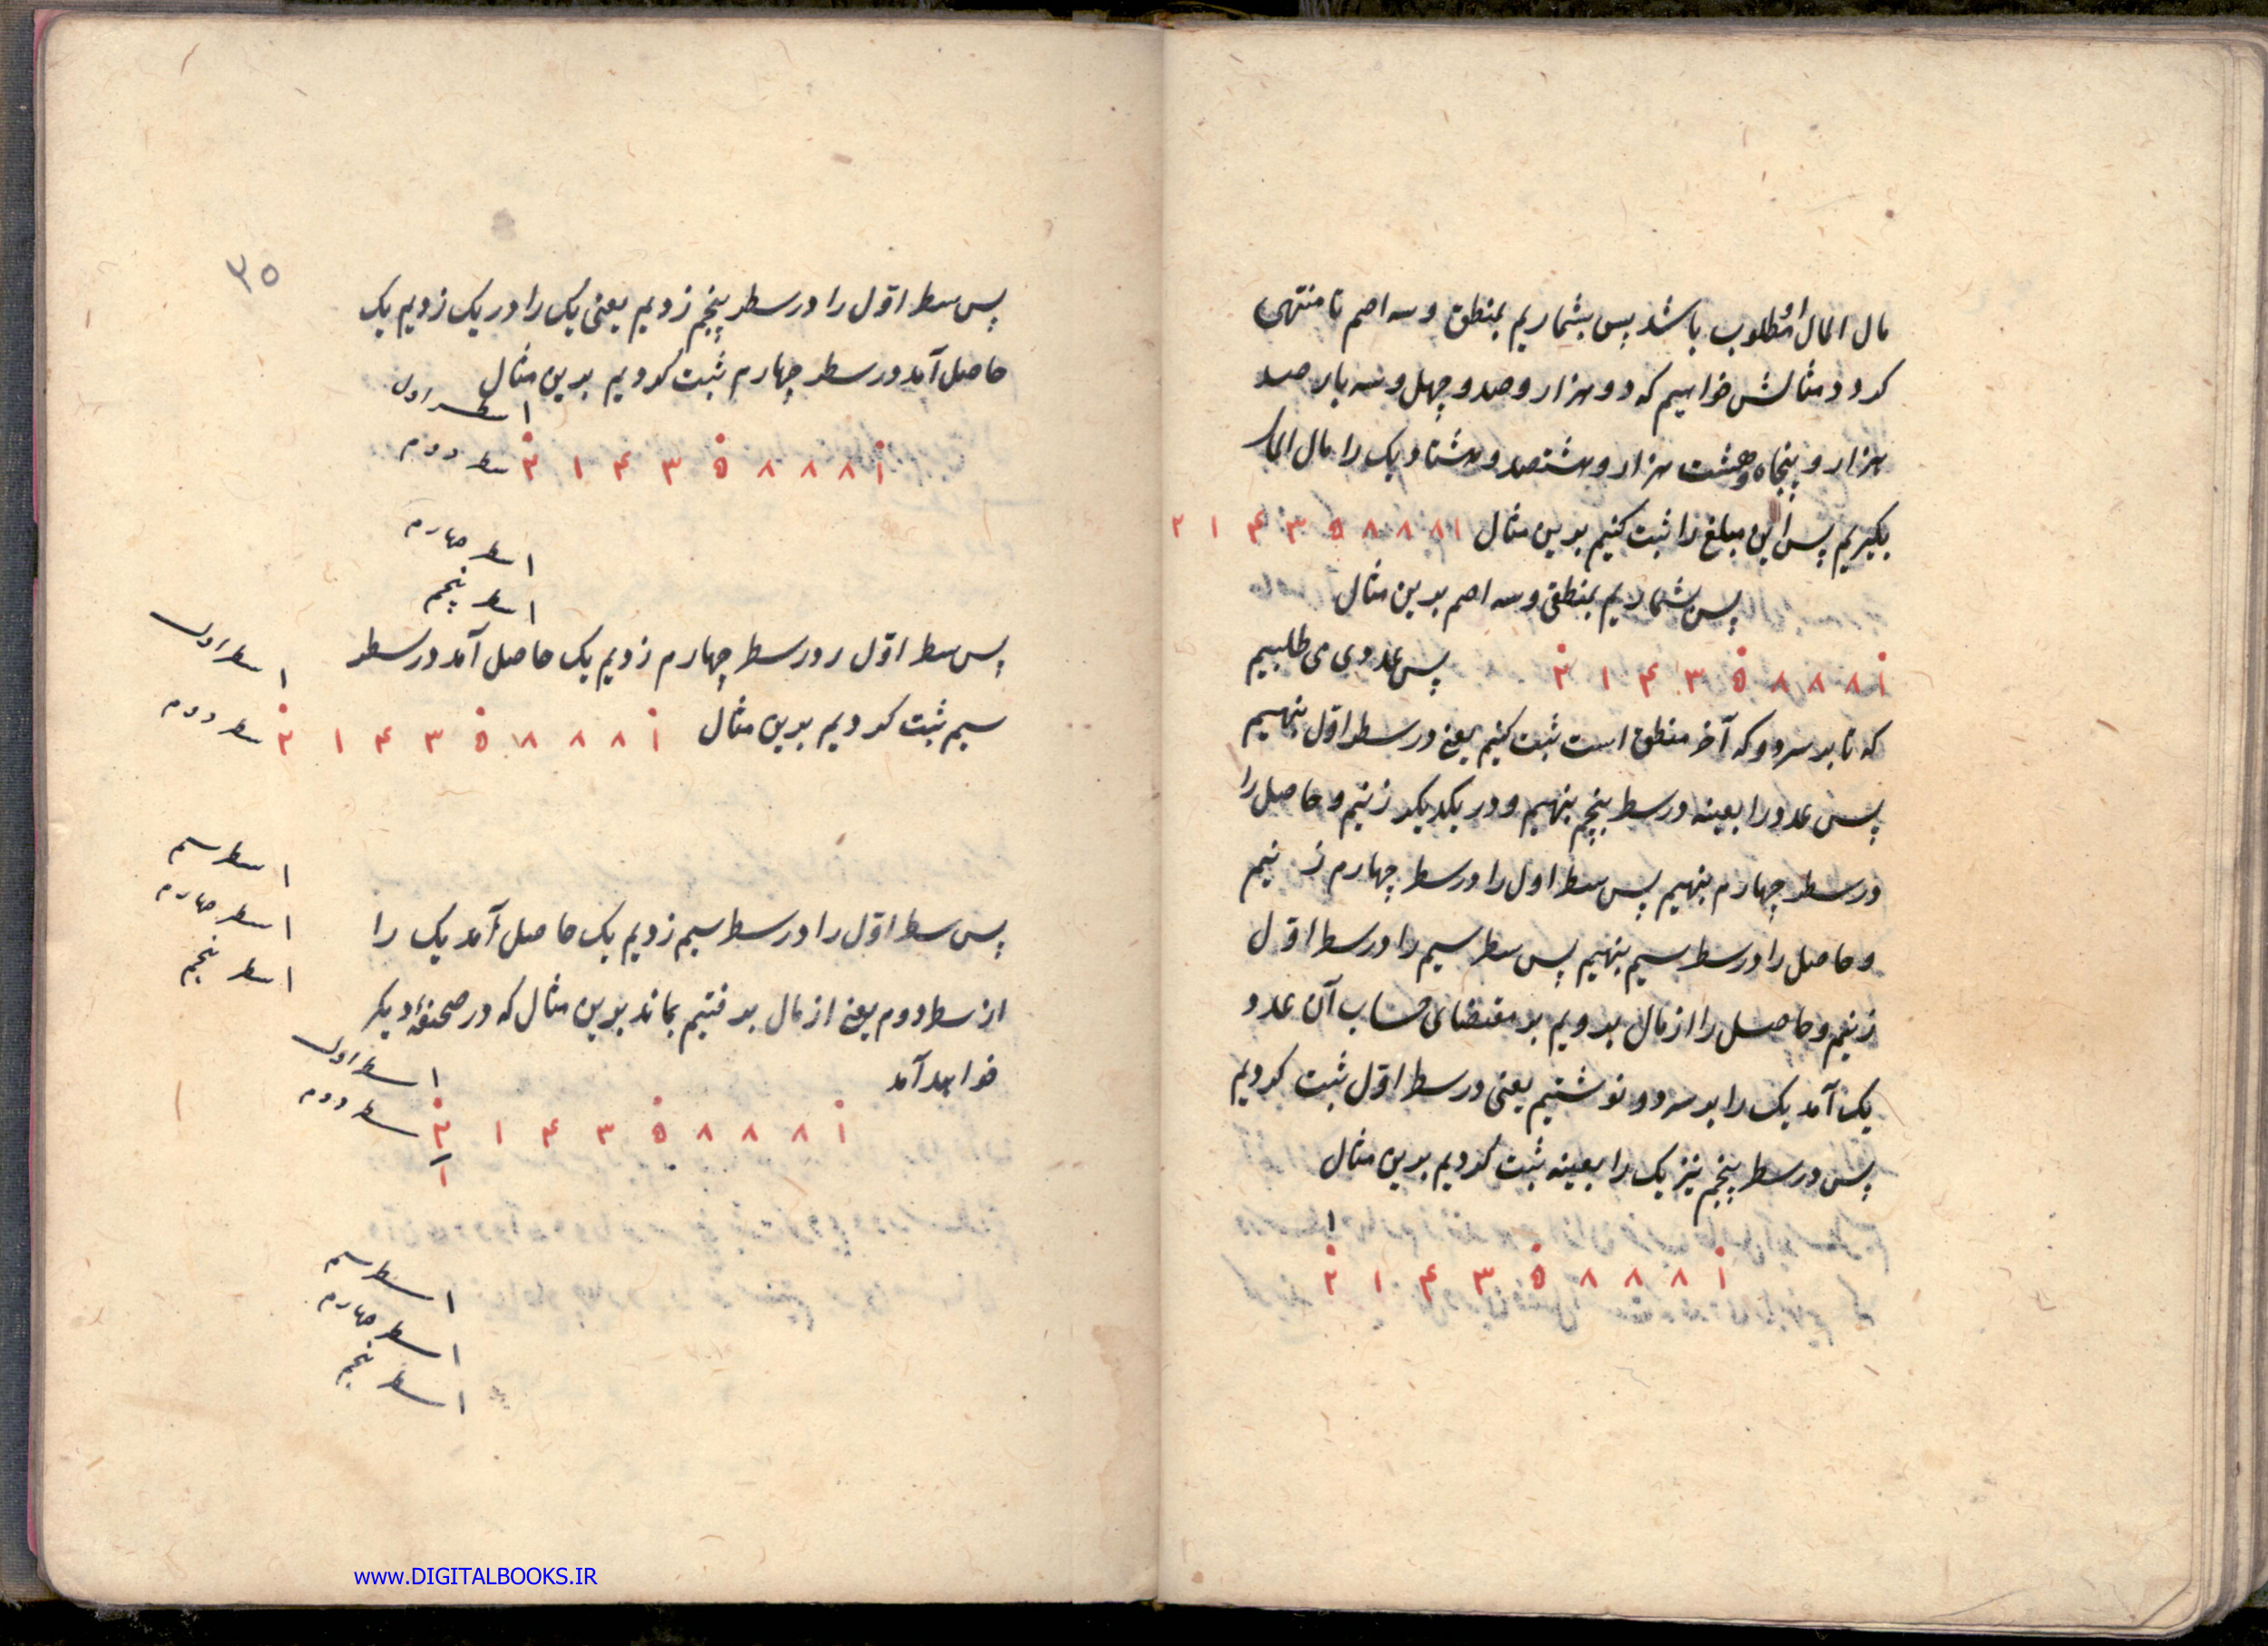 مال المال مطلوب باشد پس بشماریم بمنطق و سه اصم تا منتهی
کردد مثالش خواهیم که دو هزار و صد و چهل و سه بار صد
هزار و پنجاه و هشت هزار و هشتصد و هشتاد یک را مال المال
بکیریم پس این مبلغ را ثبت کنیم برین مثال ۲۱۴۳۵۸۸۸۱
پس شماریم بمنطق و سه اصم برین مثال
۲۱۴۳۵۸۸۸۱ پس عددی می طلبیم
که تا بر سر دو که آخر منطق است ثبت کنیم یعنی در سطر اوّل بنهیم
پس عدد را بعینه در سطر پنجم بنهیم و در یکدیکر زنیم و حاصل را
در سطر چهارم بنهیم پس سطر اول را در سطر چهارم زنیم
و حاصل را در سطر سیم بنهیم پس سطر سیم را در سطر اوّل
زنیم و حاصل را از مال برویم بر مقتضای حساب آن عدد
یک آمد یک را بر سر دو نوشتیم یعنی در سطر اوّل ثبت کردیم
پس در سطر پنجم نیز یک را بعینه ثبت کردیم برین مثال
۱
۲۱۴۳۵۸۸۸۱
۳۵
پس سطر اوّل را در سطر پنجم زدیم یعنی یک را در یک زدیم یک
حاصل آمد در سطر چهارم ثبت کردیم برین مثال
۱ سطر اول
۲۱۴۳۵۸۸۸۱ سطر دوم
۱ سطر چهارم
۱ سطر پنجم
پس سطر اوّل ر در سطر چهارم زدیم یک حاصل آمد در سطر
۱ سطر اول
سیم ثبت کردیم برین مثال ۲۱۴۳۵۸۸۸۱ سطر دوم
۱ سطر سیم
۱ سطر چهارم
۱ سطر پنجم
پس سطر اوّل را در سطر سیم زدیم یک حاصل آمد یک را
از سطر دوم یعنی از مال برفتیم بماند برین مثال که در صحیفهٔ دیکر
خواهد آمد
۱ سطر اول
۲۱۴۳۵۸۸۸۱ سطر دوم
۱
۱ سطر سیم
۱ سطر چهارم
۱ سطر پنجم
www.DIGITALBOOKS.IR